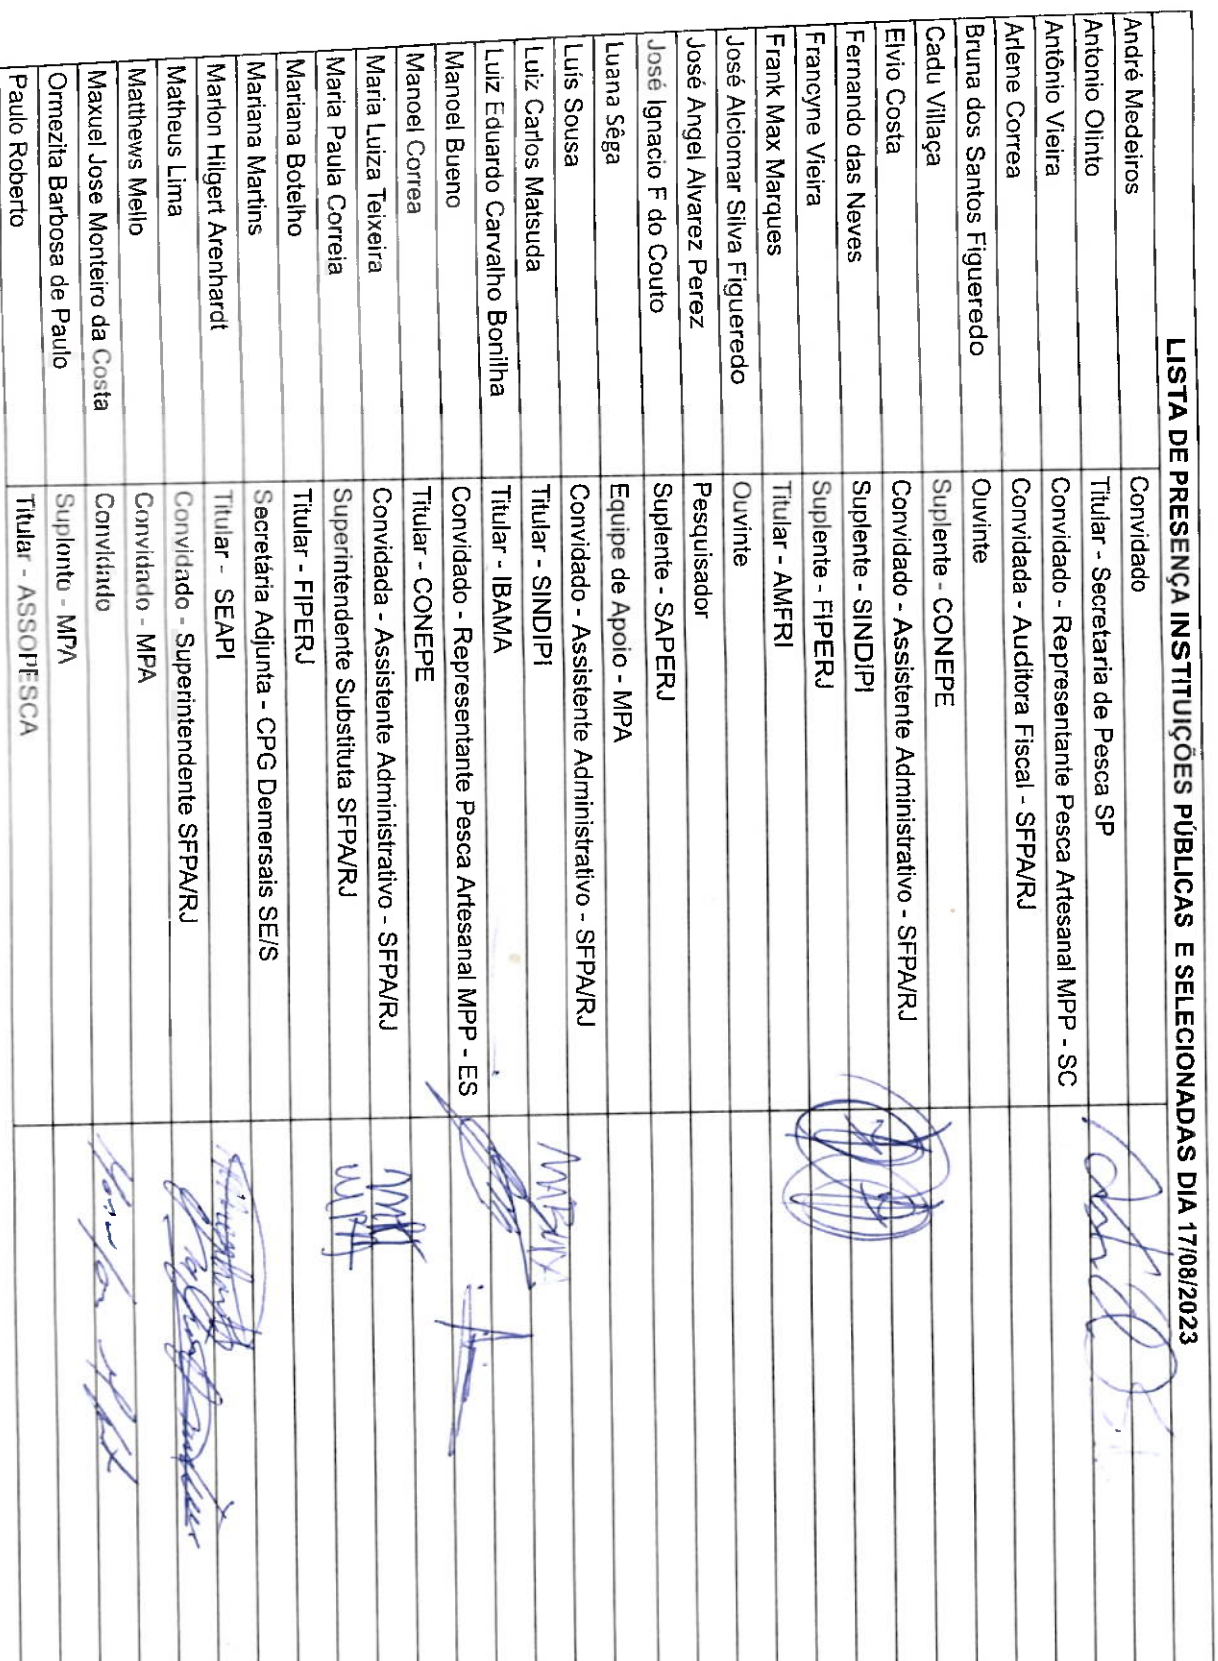 LISTA DE PRESENÇA INSTITUIÇÕES PÚBLICAS E SELECIONADAS DIA 17/08/2023
André Medeiros Convidado
Antonio Olinto Titular - Secretaria de Pesca SP
Antônio Vieira Convidado - Representante Pesca Artesanal MPP - SC
Arlene Correa Convidada - Auditora Fiscal - SFPA/RJ
Bruna dos Santos Figueredo Ouvinte
Cadu Villaça Suplente - CONEPE
Elvio Costa Convidado - Assistente Administrativo - SFPA/RJ
Fernando das Neves Suplente - SINDIPI
Francyne Vieira Suplente - FIPERJ
Frank Max Marques Titular - AMFRI
José Alciomar Silva Figueredo Ouvinte
José Angel Alvarez Perez Pesquisador
José Ignacio F do Couto Suplente - SAPERJ
Luana Sêga Equipe de Apoio - MPA
Luís Sousa Convidado - Assistente Administrativo - SFPA/RJ
Luiz Carlos Matsuda Titular - SINDIPI
Luiz Eduardo Carvalho Bonilha Titular - IBAMA
Manoel Bueno Convidado - Representante Pesca Artesanal MPP - ES
Manoel Correa Titular - CONEPE
Maria Luiza Teixeira Convidada - Assistente Administrativo - SFPA/RJ
Maria Paula Correia Superintendente Substituta SFPA/RJ
Mariana Botelho Titular - FIPERJ
Mariana Martins Secretária Adjunta - CPG Demersais SE/S
Marlon Hilgert Arenhardt Titular - SEAPI
Matheus Lima Convidado - Superintendente SFPA/RJ
Matthews Mello Convidado - MPA
Maxuel Jose Monteiro da Costa Convidado
Ormezita Barbosa de Paulo Suplente - MPA
Paulo Roberto Titular - ASSOPESCA